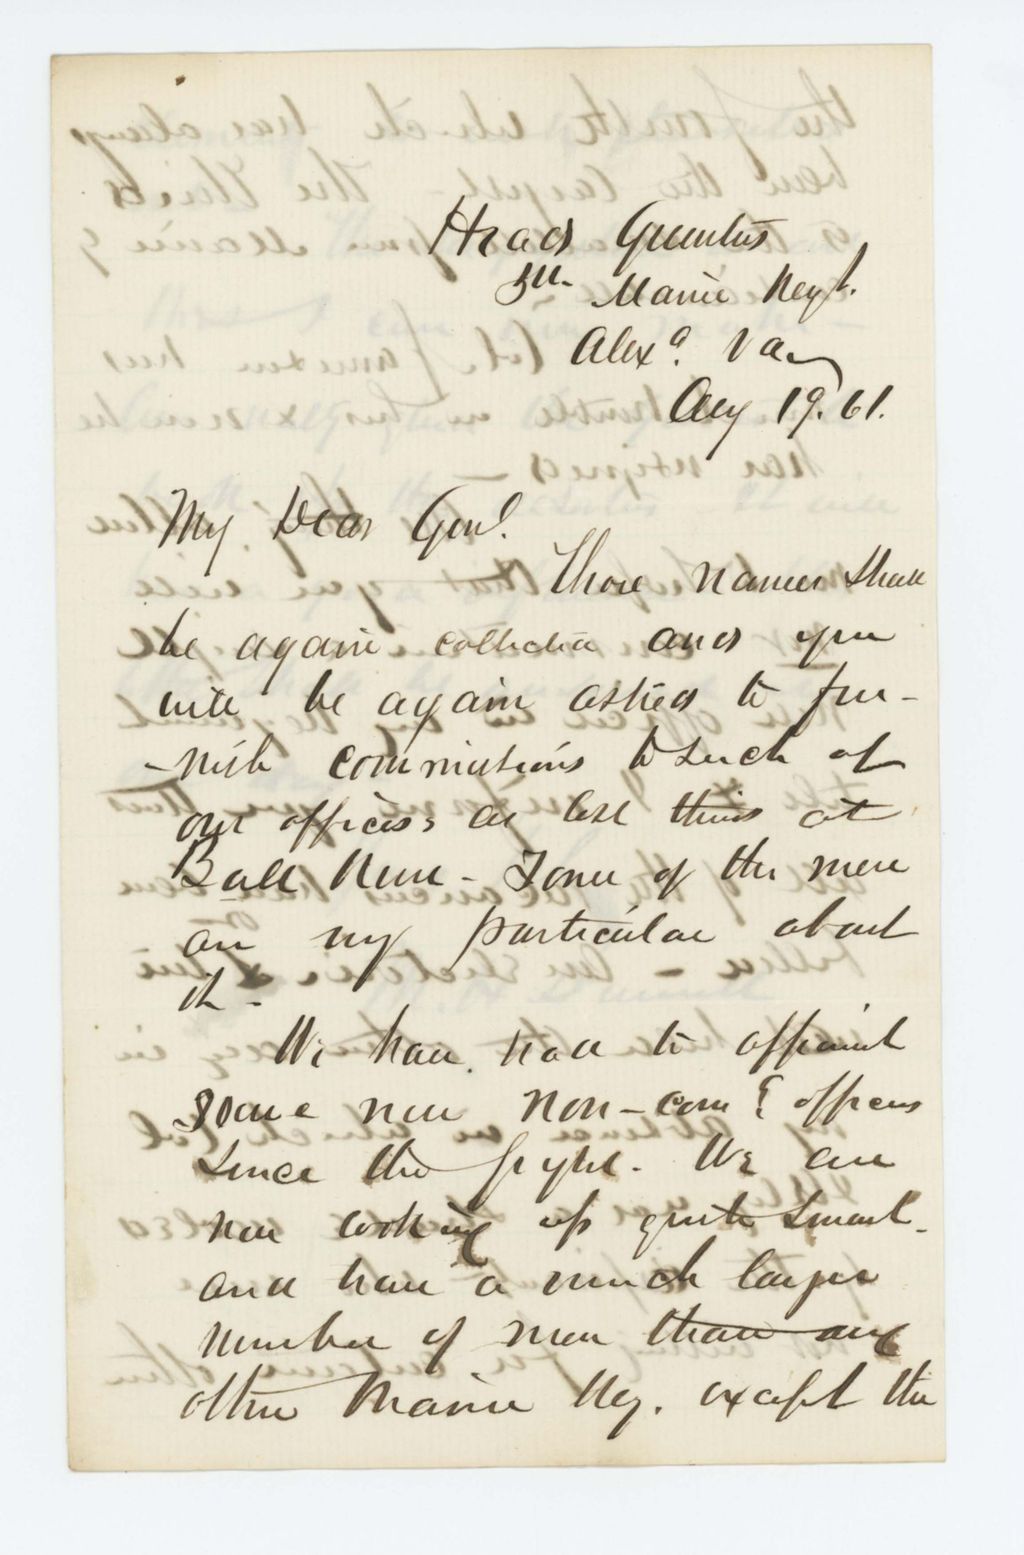 Head Quarters
5th Maine Regt.
Alexa. Va
Aug 19. 61.
My Dear Genl.
Those names shall
be again collected and you
will be again asked to fur-
-nish commissions to such of
our officers as lost theirs at
Bull Run - Some of the men
are very particular about
it -
We have had to appoint
some new non-com officers
since the fight. We are
now looking up quite smart -
and have a much larger
number of men than any
other Maine Reg. except the